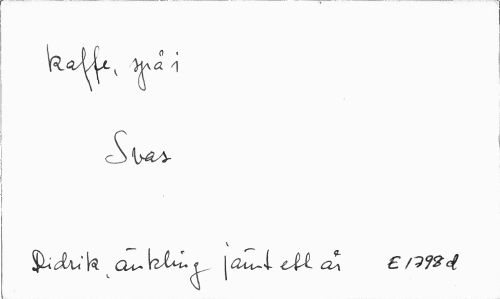 kaffe, spå i
Svar
Didrik, änkling jämt ett år E 1798 d